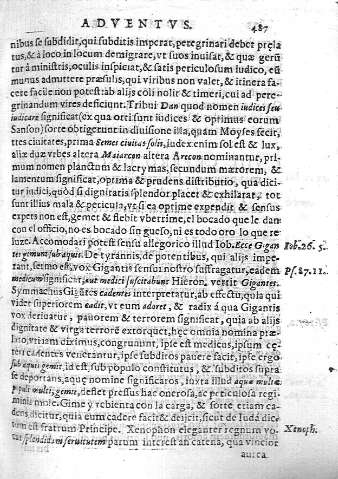 ADVENTVS. 487
nibus se subdidit, qui subditis imperat, peregrinari debet præla
tus, & à loco in locum demigrare, vt suos inuisat, & quæ gerū
tur à ministris, oculis inspiciat, & satis periculosum iudico, eū
munus admittere præsulis, qui viribus non valet, & itinera fa-
cere facile non potest: ab alijs coli nolit & timeri, cui ad pere-
grinandum vires deficiunt. Tribui Dan quod nomen iudices seu
iudicare significat (ex qua orti sunt iudices & optimus eorum
Sanson) sorte obtigerunt in diuisione illa, quam Moyses fecit,
tres ciuitates, prima Semes ciuitas solis, iudex enim sol est & lux,
aliæ duæ vrbes altera Maiarcon altera Arecon nominantur, pri-
mum nomen planctum & lacrymas, secundum mærorem, &
lamentum significat, optima & prudens distributio, qua dici-
tur iudici, quòd si dignitatis splendor placet & exhilarat, tot
sunt illius mala & pericula, vt si ea optime expendit & sensus
expers non est, gemet & flebit vberrime, el bocado que le dan
con el officio, no es bocado sin gueso, ni es todo oro lo que re
luze. Accomodari potest sensu allegorico illud Iob. Ecce Gigan
tes gemunt sub aquis. De tyrannis, de potentibus, qui alijs impe-
rant, sermo est, vox Gigantis sensui nostro suffragatur, eadem
medicum significat, aut medici suscitabunt Hieron. vertit Gigantes.
Symmachus Gigātes cadentes interpretatur, ab effectu, quia qui
videt superiorem cadit, vt eum adoret, & radix à qua Gigantis
vox deriuatur, pauorem & terrorem significat, quia ab alijs
dignitate & virga terrorē extorquet, hęc omnia nomina præ-
lato, vt iam diximus, congruunt, ipse est medicus, ipsum ce-
teri cadentes venerantur, ipse subditos pauere facit, ipse ergo
sub aquis gemit, id est, sub populo constitutus, & subditos supra
se deportans, aquę nomine significatos, iuxta illud aquæ multæ
populi multi, gemit, deflet pressus hac onerosa, ac periculosa regi
minis mole. Gime y rebienta con la carga, & forte etiam ca-
dens dicitur, quia eum cadere facit & deijcit, sicut de Iuda dic-
tum est fratrum Principe. Xenophon eleganter regnum vo-
cat splendidam seruitutem parum interest an catena, qua vincior
au: ea.
Iob. 26. 5.
Ps. 87. 11.
Xenoph.